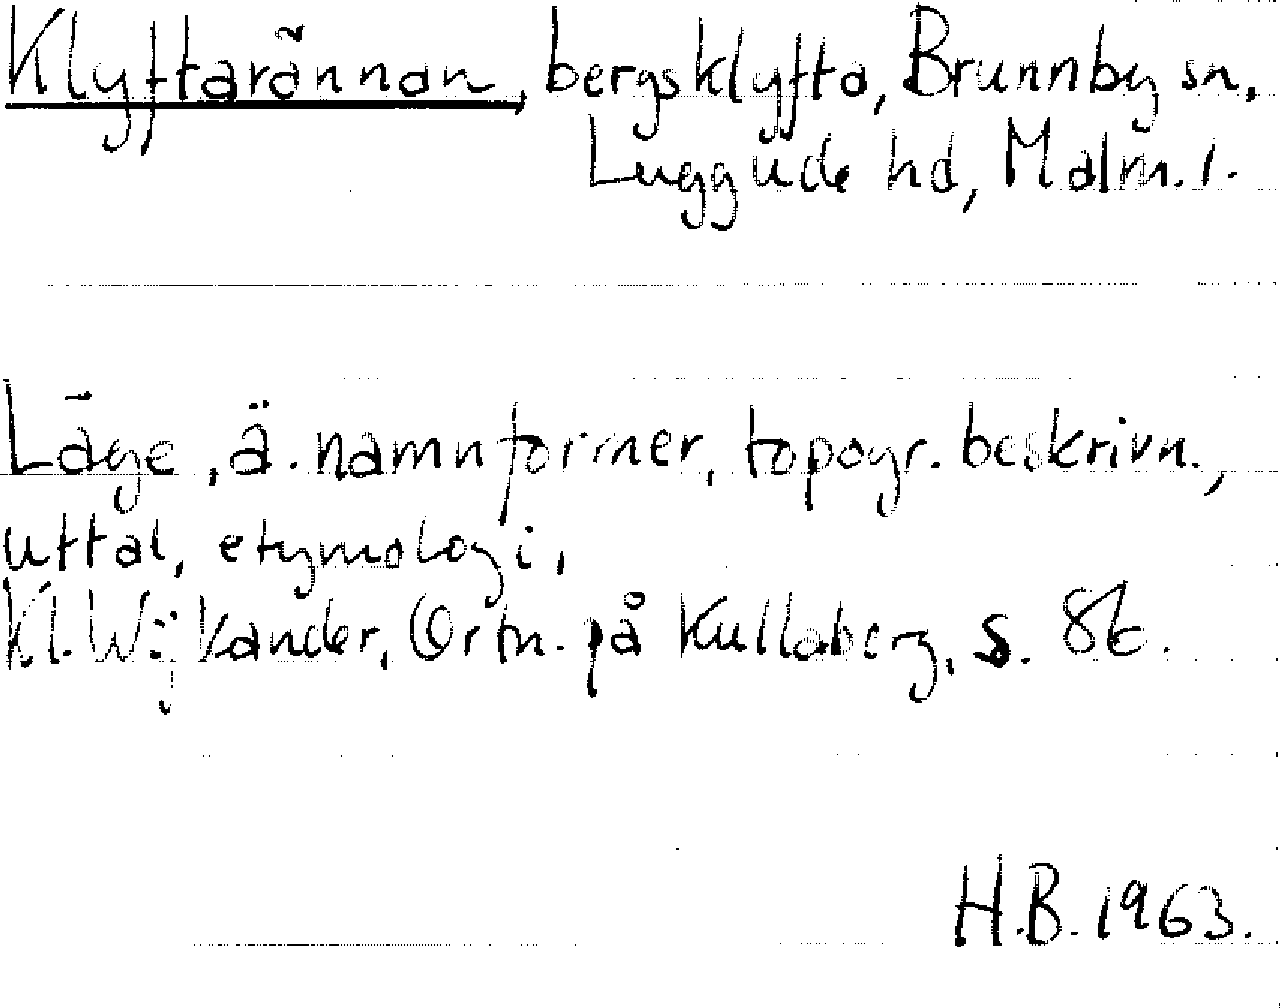 Klyftarännan, bergsklyfta, Brunnby sn,
Luggude hd, Malm. l.
Läge, ä. namnformer, topogr. beskrivn.,
uttal, etymologi,
Kl. Wikander, Ortn. på Kullaberg, s. 86.
H.B. 1963.